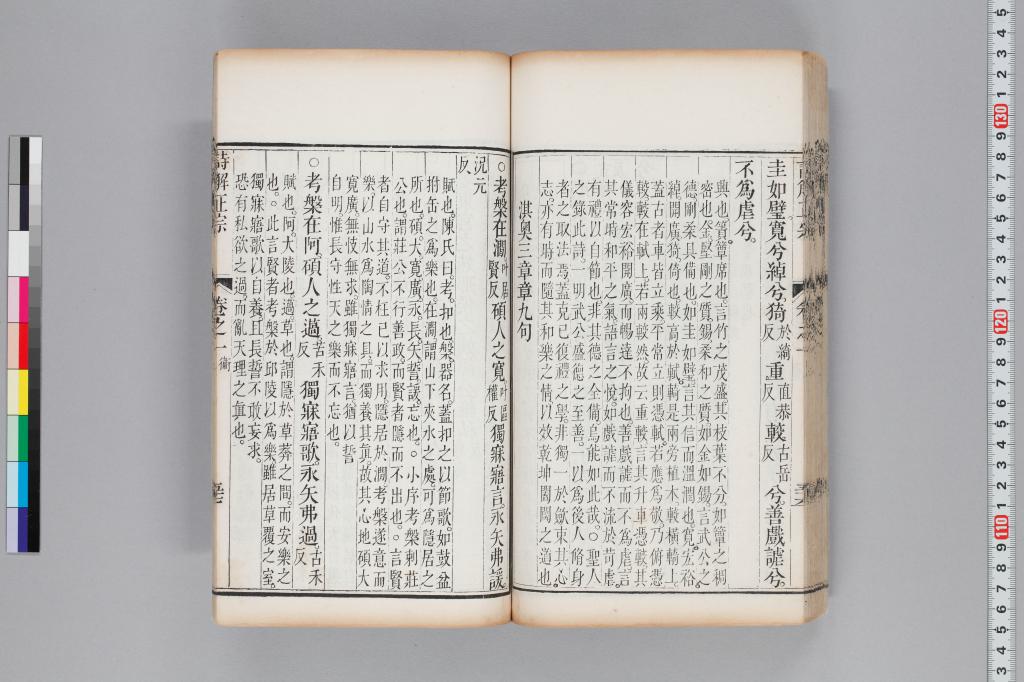 圭如璧寬兮綽兮猗於綺反重直恭反較古岳反兮善戲謔兮
不為虐兮
興也簀簟席也言竹之茂盛其枝葉不分如簟之稠
密也金堅剛之質錫柔和之質如金如錫言武公之
德剛柔具備也如圭如璧言其信而溫潤也寬宏裕
綽開廣猗倚也較高於軾輢是兩旁植木較橫輢上
蓋古者車皆立乘平常立則憑軾若應為敬乃俯憑
較較在軾上若兩較然故云重較言其升車憑較其
儀容宏裕開廣而暢達不拘也善戲謔而不為虐言
其常時和平之氣語言之悅如戲謔而不流於苛虐
有禮以自節也非其德之全備烏能如此哉○聖人
之錄此詩一明武公盛德之至善一以為後人脩身
者之取法焉蓋克己復禮之學非獨一於斂束其心
志亦有時而隨其和樂之情以效乾坤闔闢之道也
淇奧三章章九句
○考槃在澗叶居賢反碩人之寬叶區權反獨寐寤言永矢弗諼
況元反
賦也陳氏曰考扣也槃器名蓋扣之以節歌如鼓盆
拊缶之為樂也在澗謂山下夾水之處可為隱居之
所也碩大寬廣永長矢誓諼忘也○小序考槃刺莊
公也謂莊公不行善政而賢者隱而不出也○言賢
者自守其道不枉己以求用隱居於澗考槃遂意而
樂以山水為陶情之具而獨養其真故其心地碩大
寬廣無忮無求雖獨寐寤言猶以誓
自明惟長守性天之樂而不忘也
○考槃在阿碩人之薖苦禾反獨寐寤歌永矢弗過古禾反
賦也阿大陵也薖草也謂隱於草莽之間而安樂之
也此言賢者考槃於邱陵以為樂雖居草覆之室
獨寐寤歌以自養且長誓不敢妄求
恐有私欲之過而亂天理之真也
詩解正宗
卷之一
衛